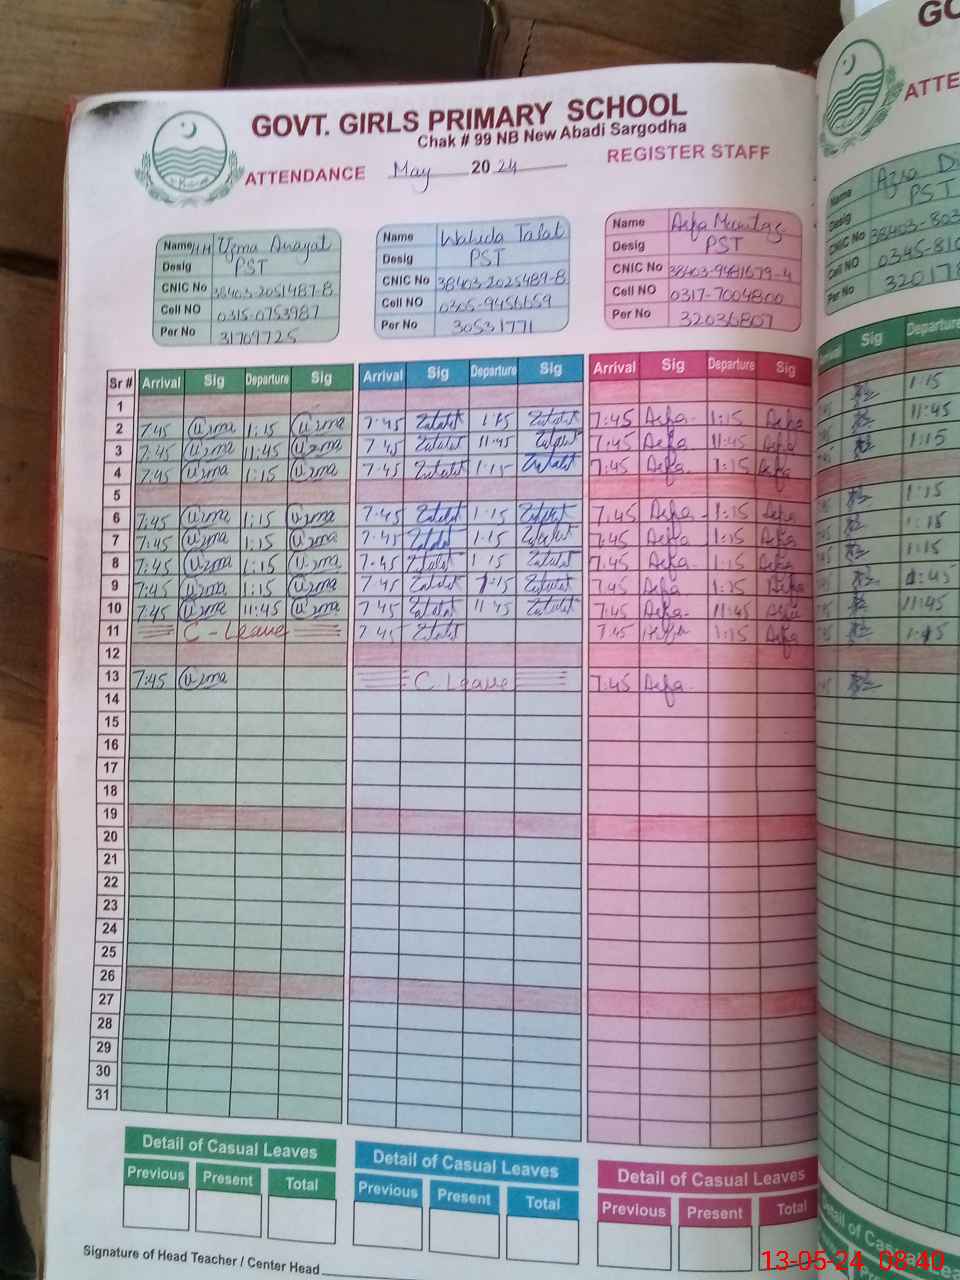 GOVT. GIRLS PRIMARY SCHOOL
Chak # 99 NB New Abadi Sargodha
ATTENDANCE May 2024 REGISTER STAFF
Name Uzma Anayat
Desig PST
CNIC No 38403-2051487-8
Cell NO 0315-0753987
Per No 31709725
Name Waheda Talat
Desig PST
CNIC No 38403-2025489-8
Cell NO 0305-9456659
Per No 30531771
Name Asfa Mumtaz
Desig PST
CNIC No 38403-9481679-4
Cell NO 0317-7004800
Per No 32036807
Sr # Arrival Sig Departure Sig Arrival Sig Departure Sig Arrival Sig Departure Sig
1
2 7:45 Uzma 1:15 Uzma 7:45 1:15 7:45 Asfa 1:15 Asfa
3 7:45 Uzma 11:45 Uzma 7:45 11:45 7:45 Asfa 11:45 Asfa
4 7:45 Uzma 1:15 Uzma 7:45 1:15 7:45 Asfa 1:15 Asfa
5
6 7:45 Uzma 1:15 Uzma 7:45 1:15 7:45 Asfa 1:15 Asfa
7 7:45 Uzma 1:15 Uzma 7:45 1:15 7:45 Asfa 1:15 Asfa
8 7:45 Uzma 1:15 Uzma 7:45 1:15 7:45 Asfa 1:15 Asfa
9 7:45 Uzma 1:15 Uzma 7:45 1:15 7:45 Asfa 1:15 Asfa
10 7:45 Uzma 11:45 Uzma 7:45 11:45 7:45 Asfa 11:45 Asfa
11 C-Leave 7:45 7:45 Asfa 1:15 Asfa
12
13 7:45 Uzma C.Leave 7:45 Asfa
14
15
16
17
18
19
20
21
22
23
24
25
26
27
28
29
30
31
Detail of Casual Leaves
Previous Present Total
Detail of Casual Leaves
Previous Present Total
Detail of Casual Leaves
Previous Present Total
Signature of Head Teacher / Center Head
GO
ATTE
Name Azra
Desig PST
CNIC No 38403-803
Cell NO 0345-810
Per No
Sig Departure
1:15
11:45
1:15
1:15
1:15
1:15
11:45
Detail of Casual Leaves
13-05-24 08:40